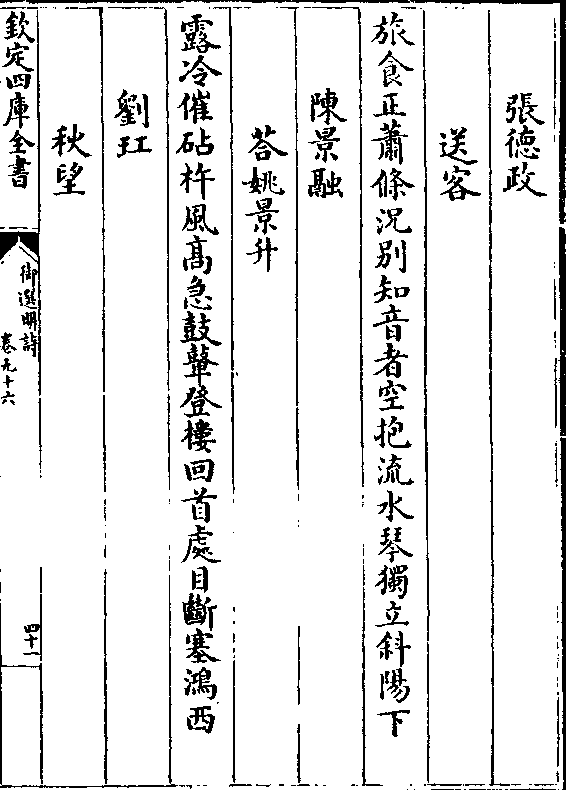 張德政
送客
旅食正蕭條况別知音者空抱流水琴獨立斜陽下
陳景融
荅姚景升
露冷催砧杵風髙急鼓鼙登樓回首處目斷塞鴻西
劉玒
秋望
欽定四庫全書
御選明詩
卷九十六
四十一